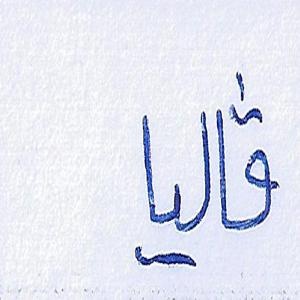 قالیا